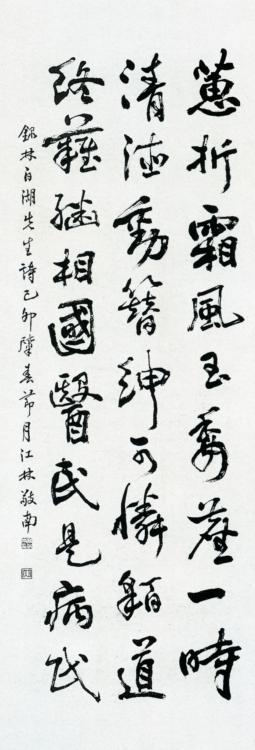 蕙折霜風玉委塵一時
清動簪紳可憐道
繼相國醫民是病民
錄林白湖先生詩己卯春節月江林敬南